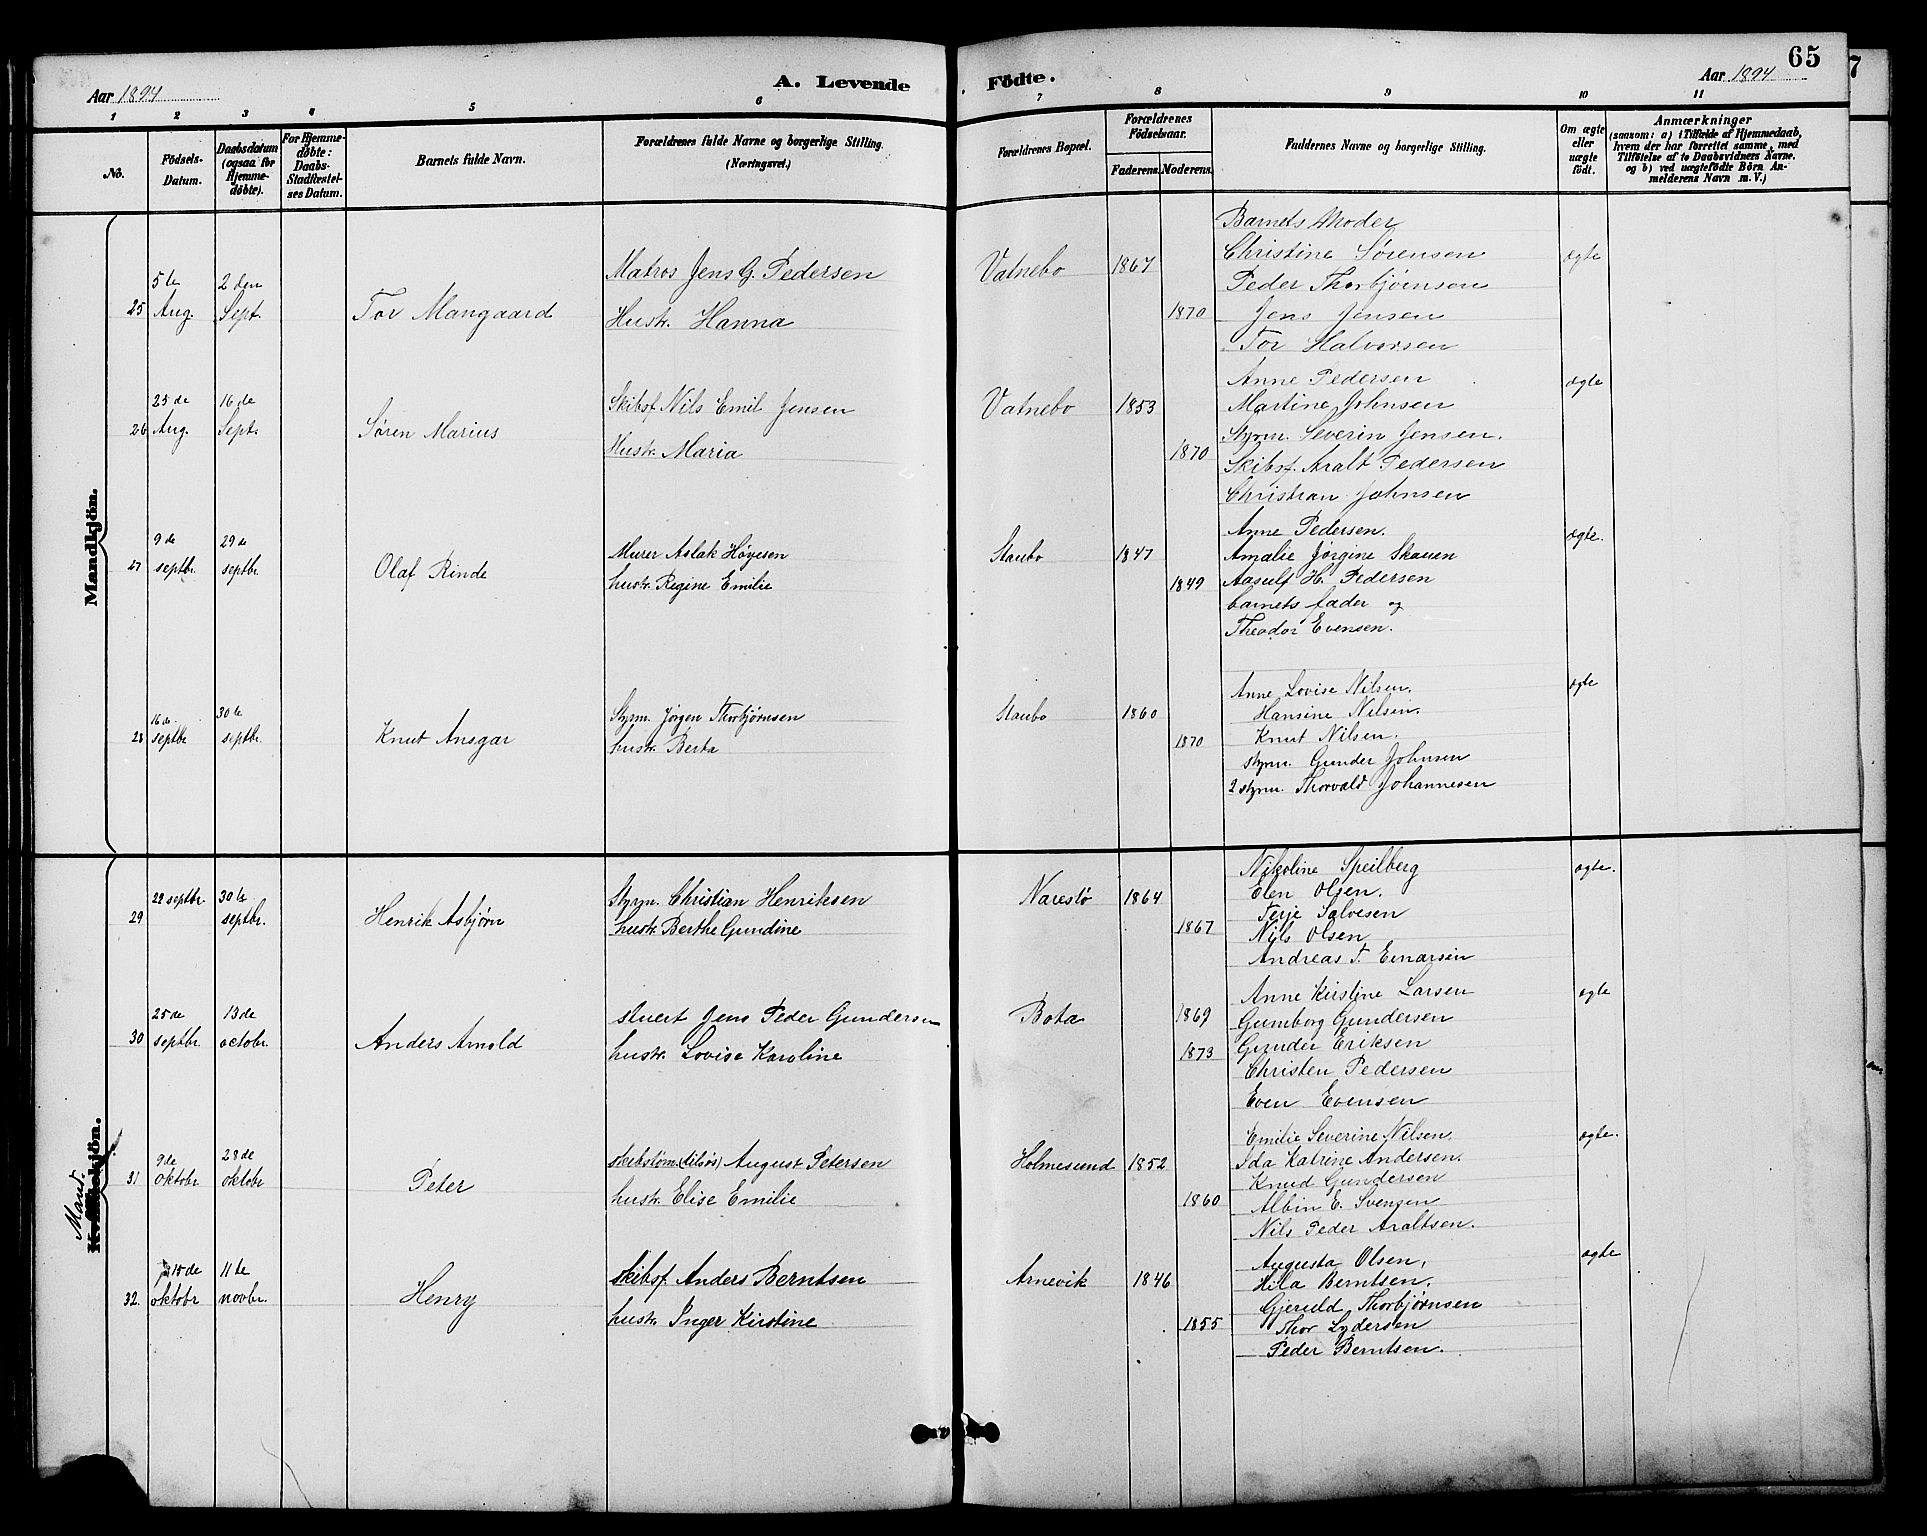 65
Aar 1894
A. Levende Födte.
Aar 1894
1 2 3 4 5 6 7 8 9 10 11
No.
Födsels-Datum.
Daabsdatum (ogsaa for Hjemmedøbte).
For Hjemmedøbte: Daabs-Stadfæstelses Datum.
Barnets fulde Navn.
Forældrenes fulde Navne og borgerlige Stilling. (Næringsvei.)
Forældrenes Bopæl.
Forældrenes Födselsaar.
Faderens. Moderens.
Faddernes Navne og borgerlige Stilling.
Om ægte eller uægte født.
Anmærkninger
(saasom: a) i Tilfælde af Hjemmedaab, hvem der har forrettet samme, med Tilföielse af to Daabsvidners Navne, og b) ved uægtefödte Börn Anmelderens Navn m. V.)
Mandkjön.
25
5te Aug.
2den Sept.
Tor Mangaard
Matros Jens G. Pedersen
Hustr. Hanna
Vatnebo
1867
1870
Barnets Moder
Christine Sørensen
Peder Thorbjørnsen
Jens Jensen
Tor Halvorsen
ægte
26
25de Aug.
16de Sept.
Søren Marius
Skibsf. Nils Emil Jensen
Hustr. Maria
Vatnebo
1853
1870
Anne Pedersen
Martine Johnsen
Styrm. Severin Jensen.
Skibsf. Aralt Pedersen
Christian Johnsen
ægte
27
9de septbr.
29de septbr.
Olaf Rinde
Murer Aslak Høyesen
hustr. Regine Emilie
Staubo
1847
1849
Anne Pedersen.
Amalie Jørgine Skauen
Aasulf H. Pedersen
barnets fader og
Theodor Evensen.
ægte.
28
16de septbr
30te septbr.
Knut Ansgar
Styrm. Jørgen Thorbjørnsen
hustr. Berta
Staubo
1860
1870
Anne Lovise Nilsen.
Hansine Nilsen.
Knut Nilsen.
styrm. Gunder Johnsen
2 styrm. Thorvald Johannesen
ægte
Mand.
Kvindekjön.
29
22 septbr.
30te septbr.
Henrik Asbjørn
Styrm. Christian Henriksen
hustr. Berthe Gundine
Narestø
1864
1867
Nikoline Speilberg
Elen Olsen.
Terje Salvesen
Nils Olsen
Andreas T. Einarsen
ægte.
30
25de septbr.
13de octobr.
Anders Arnold
stuert Jens Peder Gundersen
hustr. Lovise Karoline
Bota
1869
1873
Anne Kirstine Larsen
Gumborg Gundersen
Gunder Eriksen
Christen Pedersen
Even Evensen
ægte
31
9de oktobr.
28de oktobr
Peter
August Petersen
hustr. Elise Emilie
Holmesund
1852
1860
Emilie Severine Nilsen.
Ida Katrine Andersen.
Knud Gundersen
Albin E. Svensen
Nils Peder Araltsen.
ægte.
32.
15de oktobr
11te novbr.
Henry
skibsf. Anders Berntsen
hustr. Inger Kirstine
Arnevik
1846
1855
Augusta Olsen,
Hila Berntsen.
Gjeruld Thorbjørnsen
Thor Lydersen
Peder Berntsen.
ægte